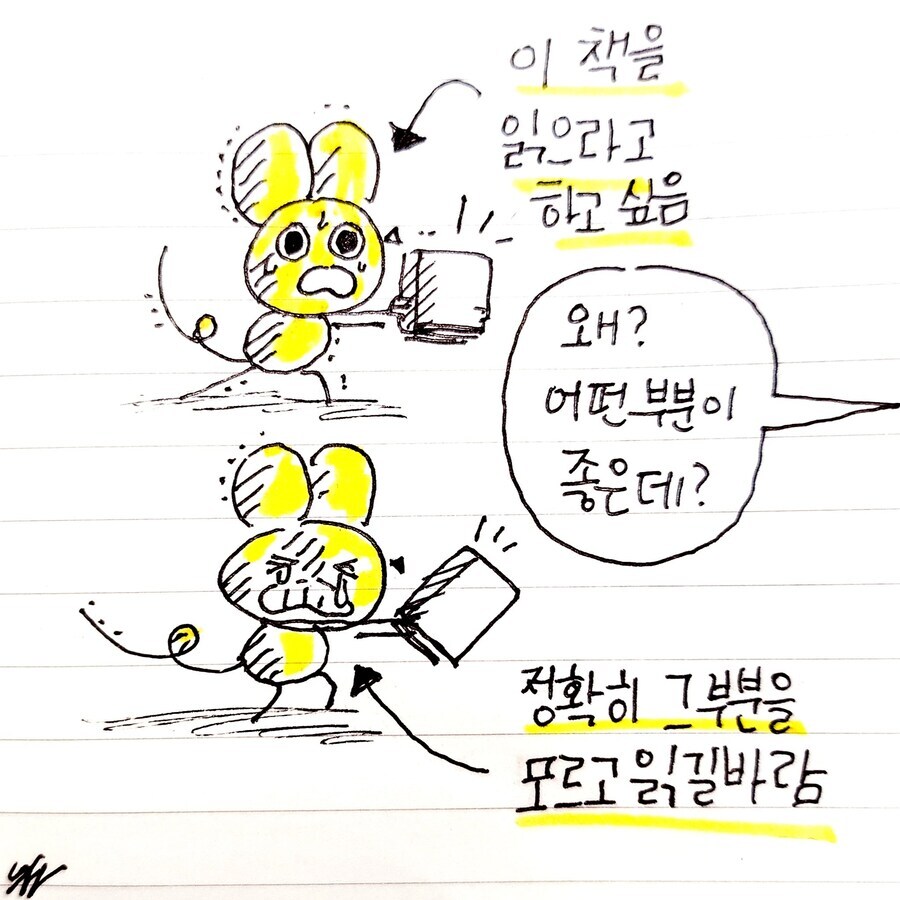 이 책을
읽으라고
하고 싶음
왜?
어떤 부분이
좋은데?
정확히 그 부분을
모르고 읽길 바람